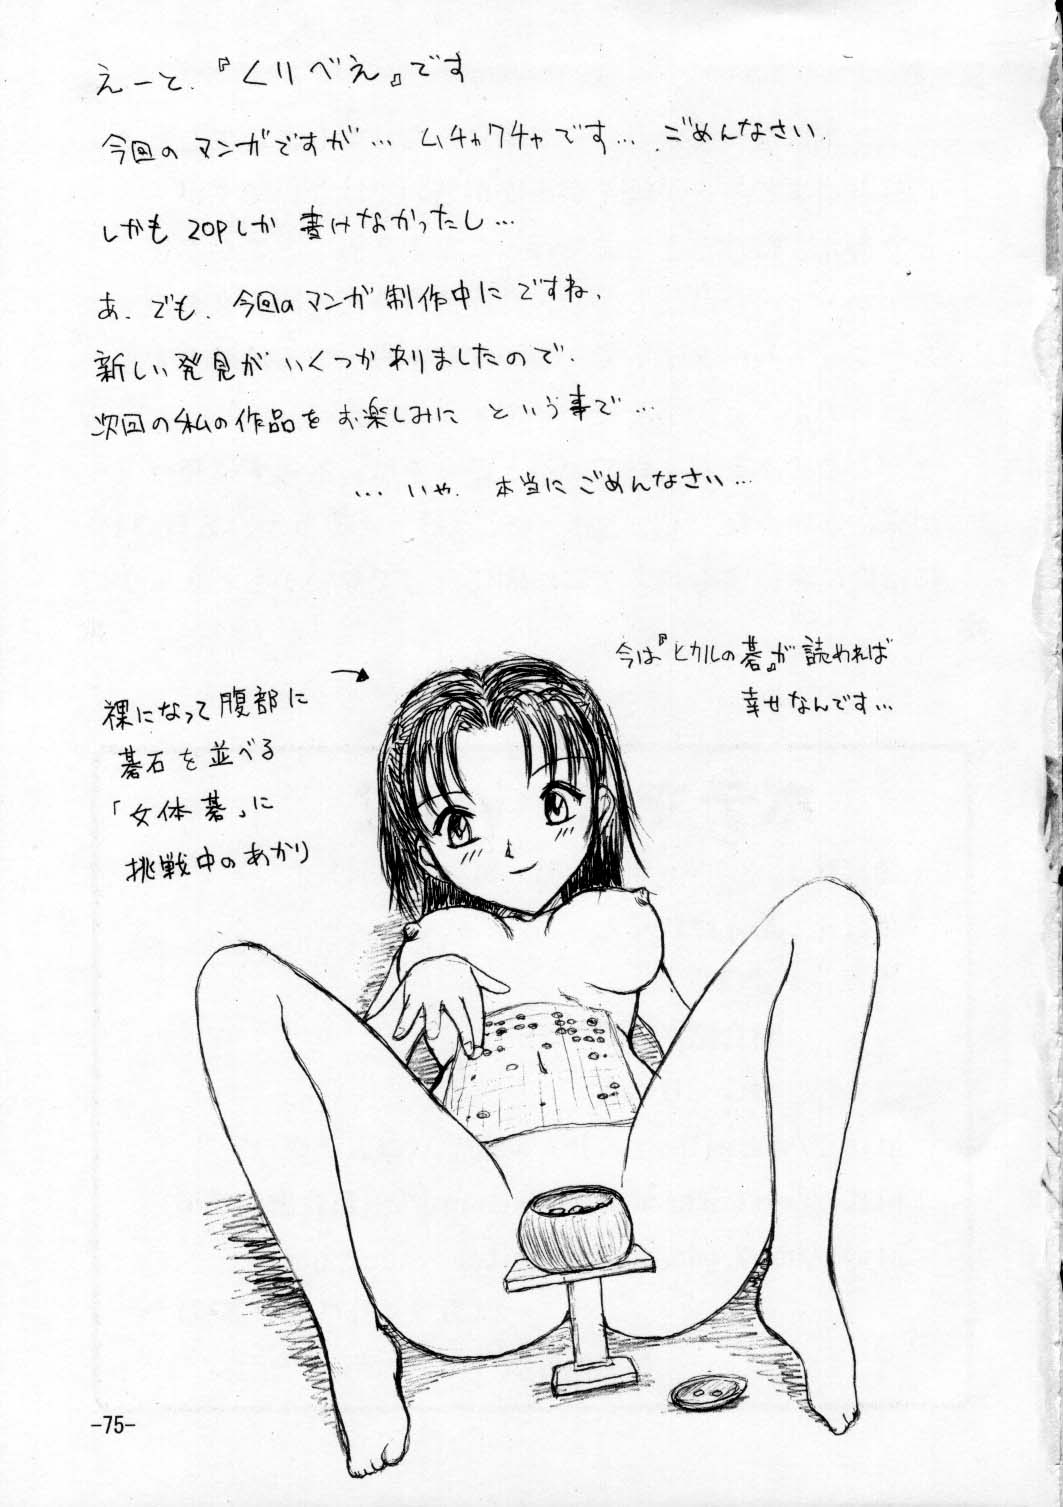 えーと、『くりべえ』です
今回のマンガですが… ムチャクチャです… ごめんなさい。
しかも 20Pしか 書けなかったし…
あ、でも、今回のマンガ 制作中に ですね、
新しい発見が いくつか ありましたので、
次回の私の作品を お楽しみに という事で…
… いや、本当に ごめんなさい…
今は『ヒカルの碁』が 読めれば
幸せなんです…
裸になって腹部に
碁石を並べる
「女体碁」に
挑戦中のあかり
-75-